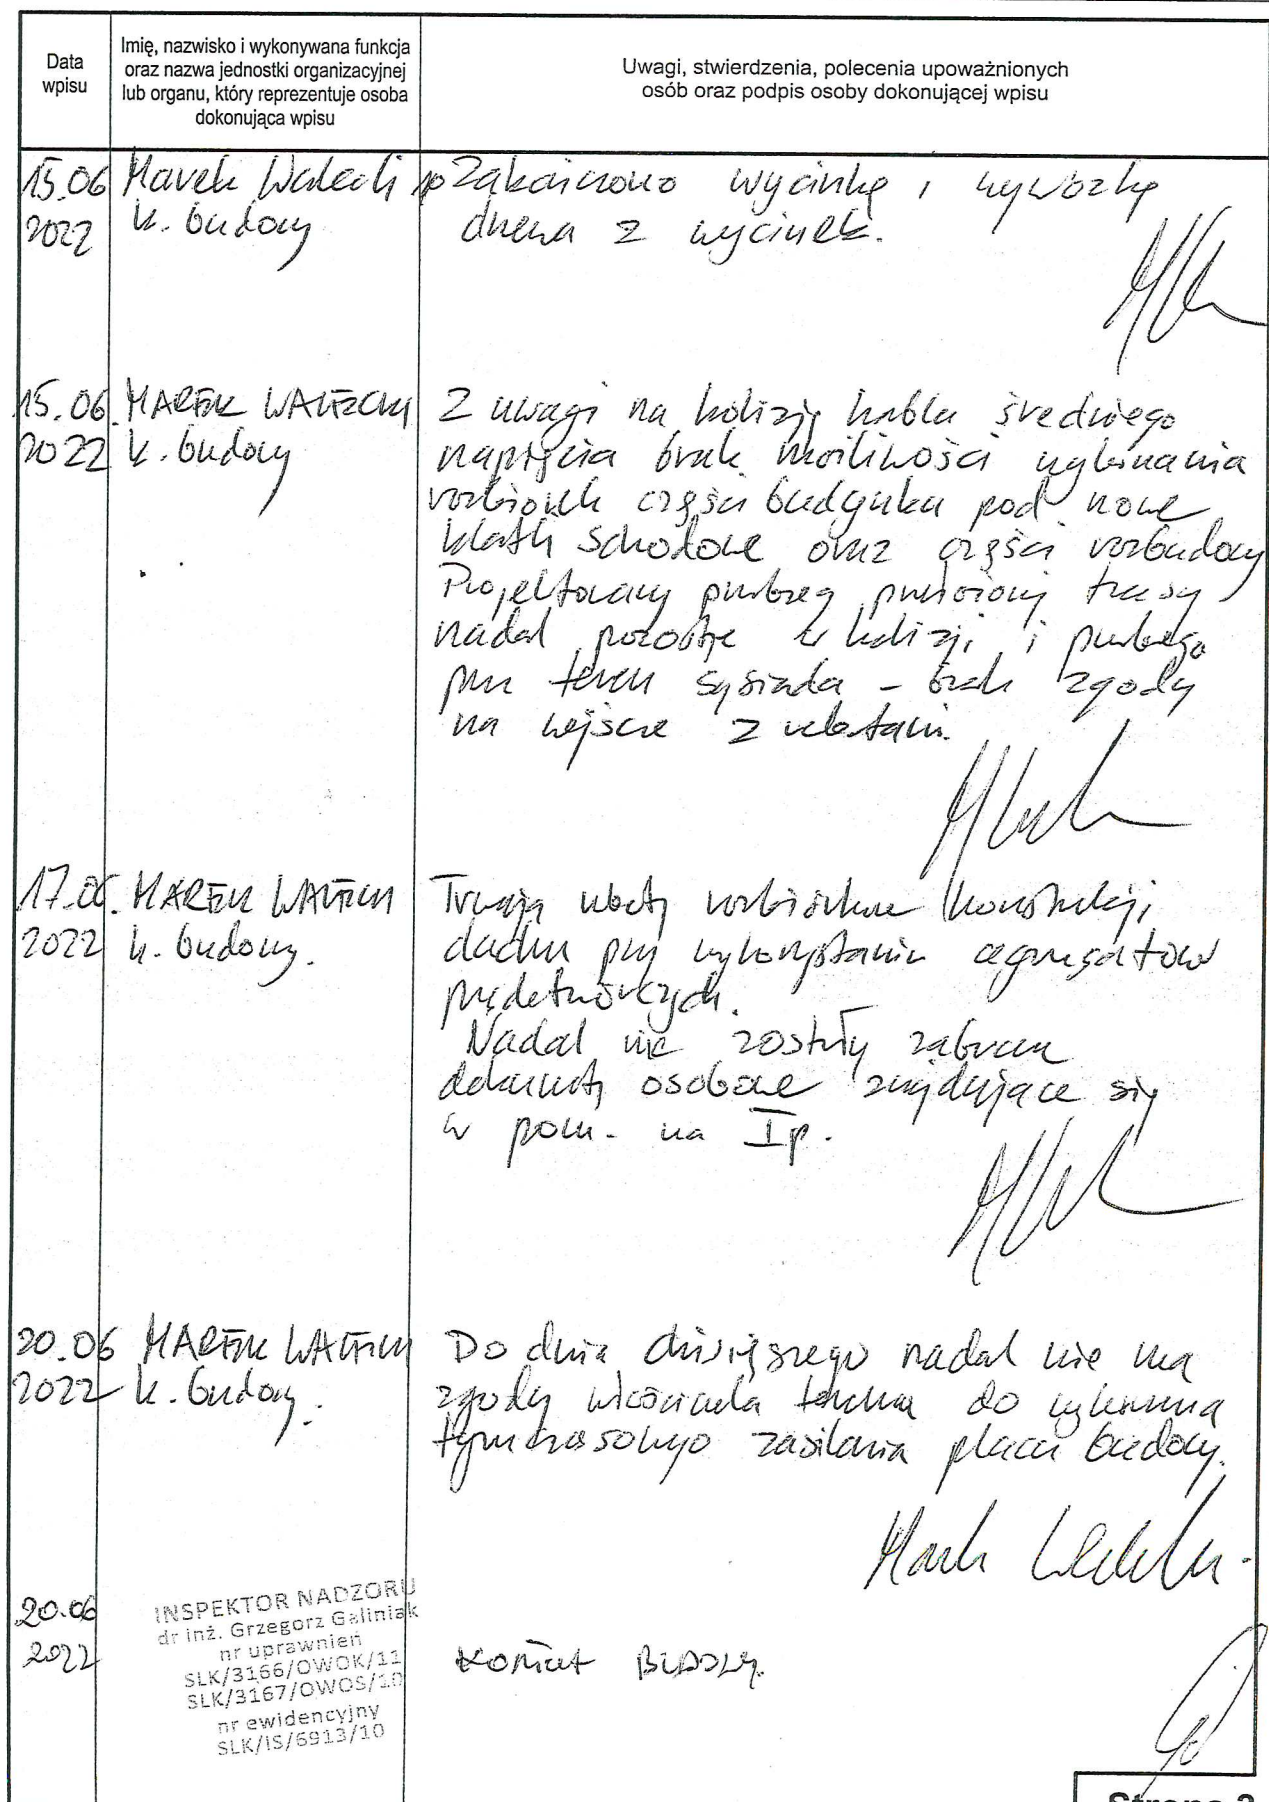 Data
wpisu
Imię, nazwisko i wykonywana funkcja
oraz nazwa jednostki organizacyjnej
lub organu, który reprezentuje osoba
dokonująca wpisu
Uwagi, stwierdzenia, polecenia upoważnionych
osób oraz podpis osoby dokonującej wpisu
15.06
2022
Marek Walecki
k. budowy
Zakończono wycinkę i wywózkę
drzewa z wycinek.
15.06.
2022
MAREK WALECKI
k. budowy
Z uwagi na kolizję kabla średniego
napięcia brak możliwości wykonania
rozbiórek części budynku pod nowe
klatki schodowe oraz części rozbudowy
Projektowany przebieg przełożonej trasy
nadal pozostaje w kolizji i przebiega
przez teren sąsiada - brak zgody
na wejście z robotami.
17.06.
2022
MAREK WALECKI
k. budowy.
Trwają roboty rozbiórkowe konstrukcji
dachu przy wykorzystaniu agregatów
prądotwórczych.
Nadal nie zostały zabrane
dokumenty osobowe znajdujące się
w pom. na I p.
20.06
2022
MAREK WALECKI
k. budowy.
Do dnia dzisiejszego nadal nie ma
zgody właściciela terenu do wykonania
tymczasowego zasilania placu budowy.
Marek Walecki
20.06
2022
INSPEKTOR NADZORU
dr inż. Grzegorz Galiniak
nr uprawnień
SLK/3166/OWOK/11
SLK/3167/OWOS/10
nr ewidencyjny
SLK/IS/6913/10
BUDOWY.